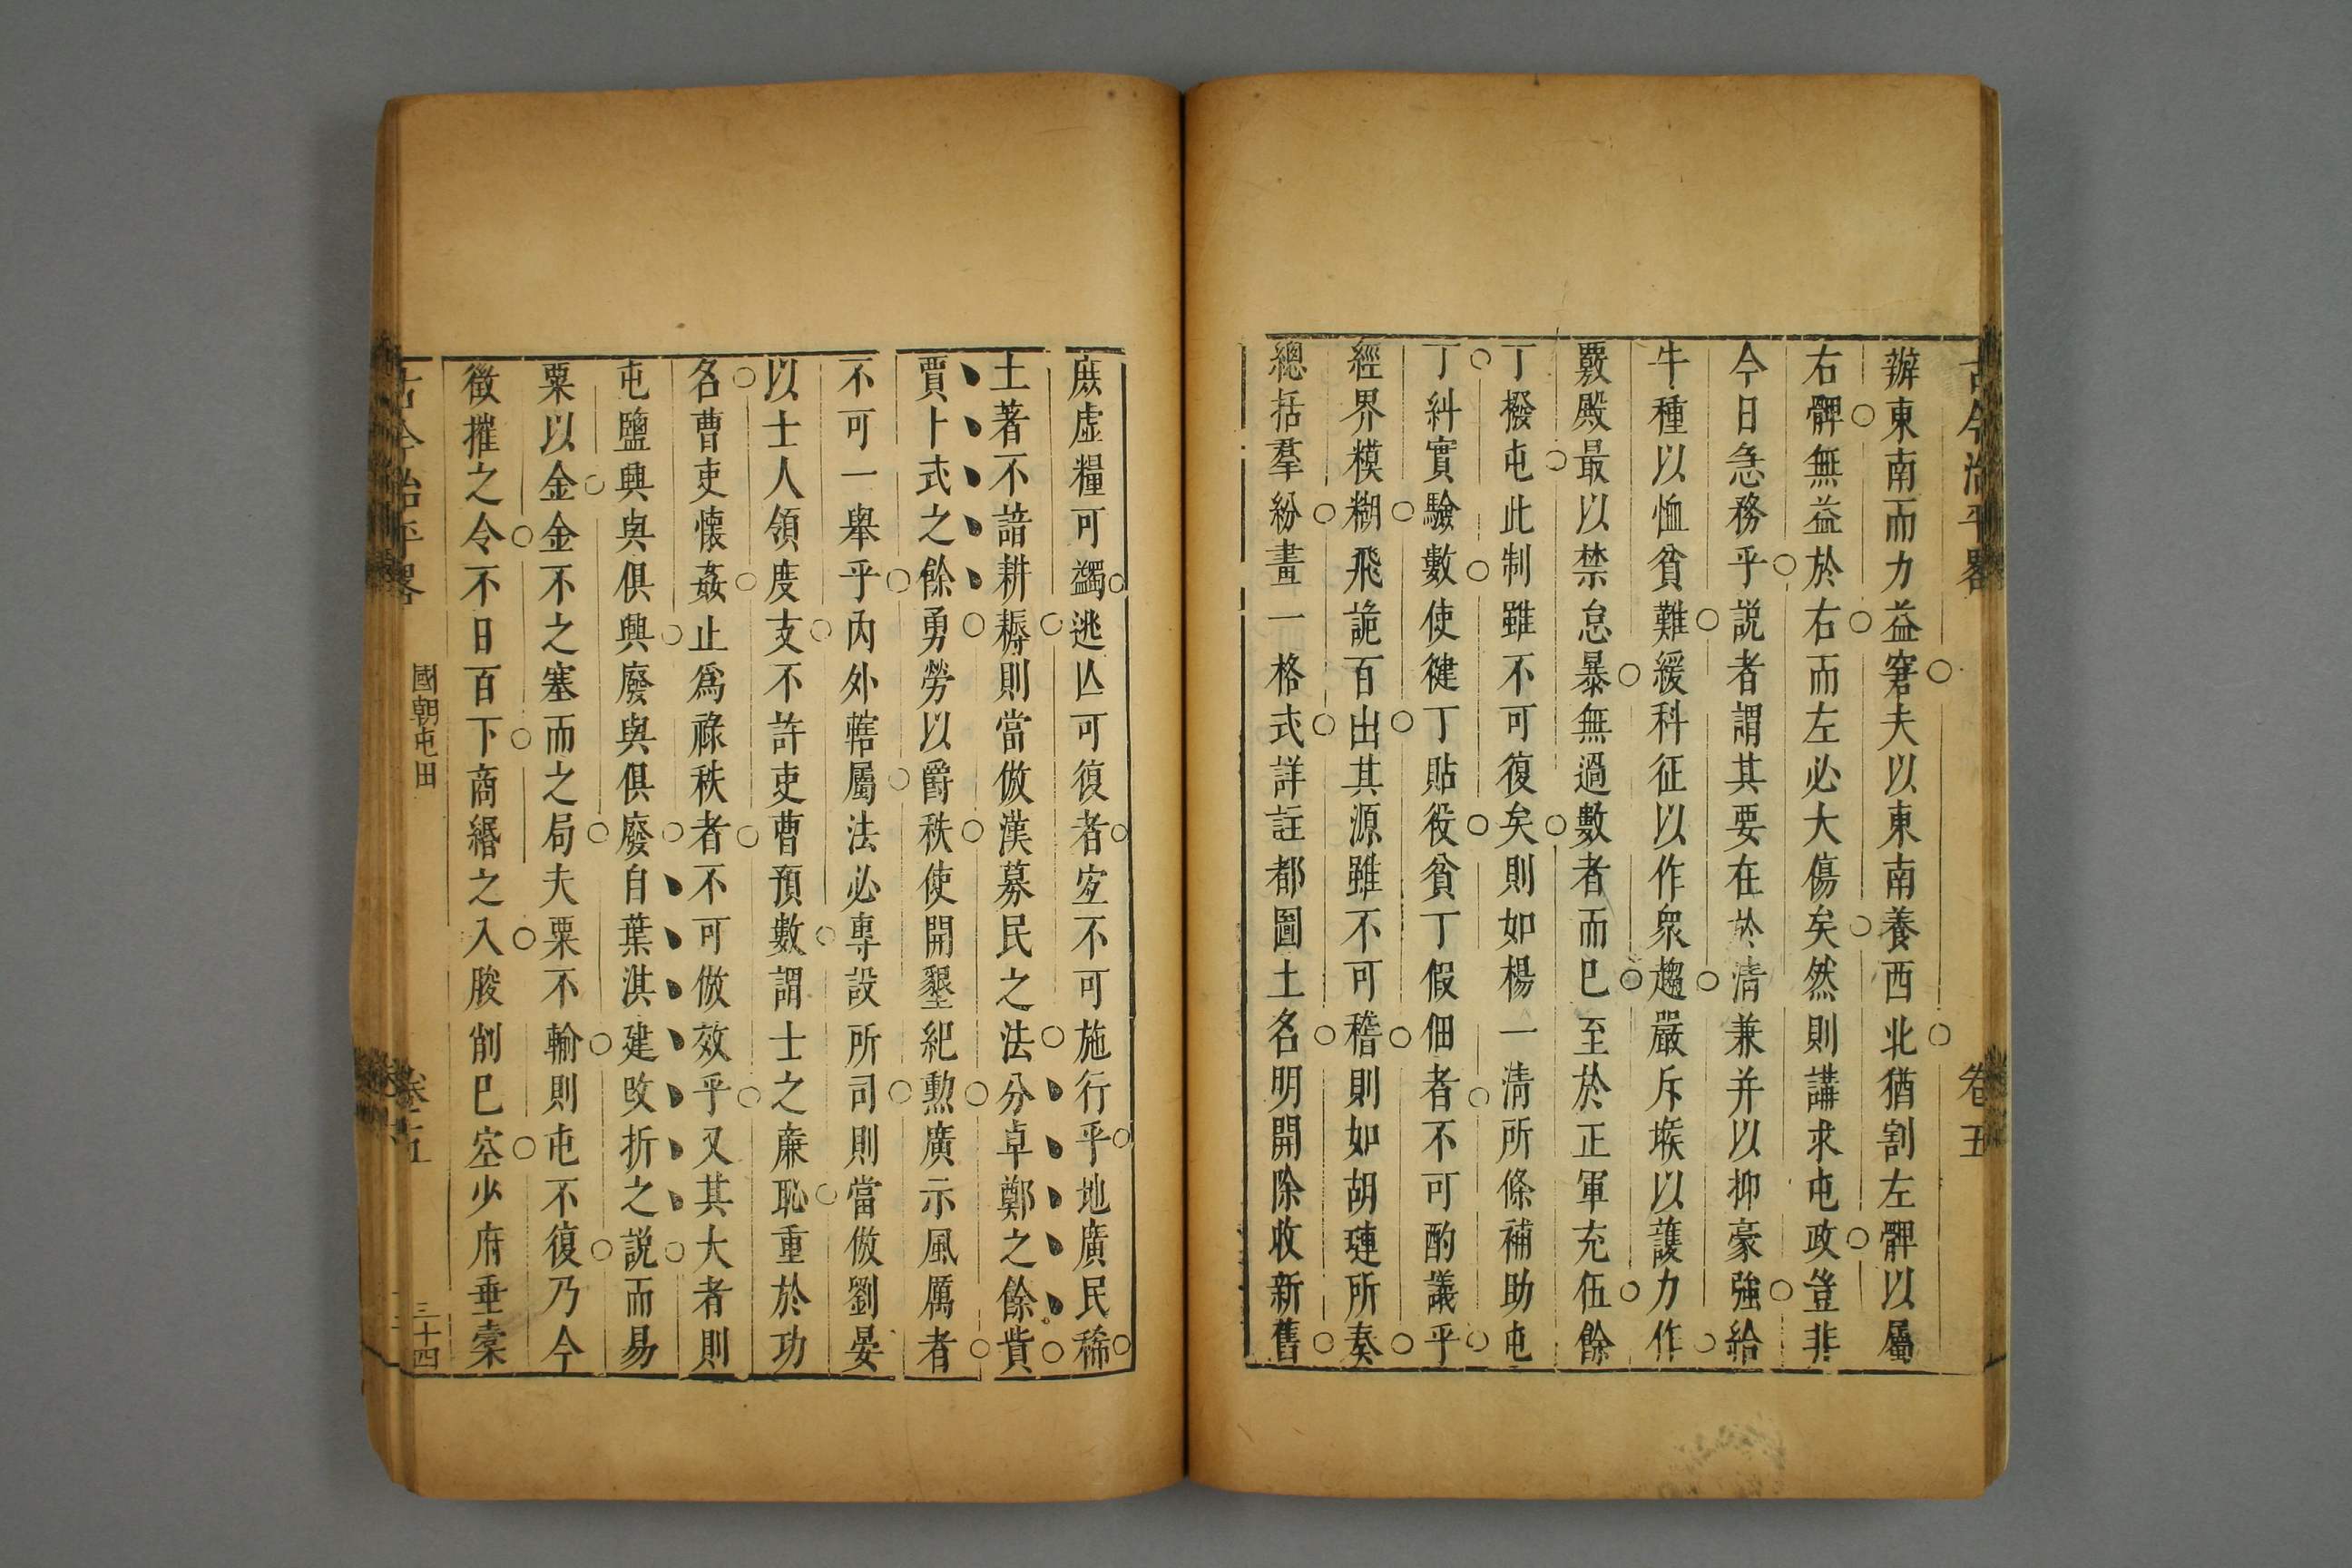 古今治平畧 卷五
辦東南而力益窘夫以東南養西北猶割左髀以屬
右髀無益於右而左必大傷矣然則講求屯政豈非
今日急務乎說者謂其要在於清兼并以抑豪強給
牛種以恤貧難緩科征以作眾趨嚴斥堠以護力作
覈殿最以禁怠暴無過數者而已至於正軍充伍餘
丁撥屯此制雖不可復矣則如楊一清所條補助屯
丁糾實驗數使健丁貼役貧丁假佃者不可酌議乎
經界模糊飛詭百出其源雖不可稽則如胡璉所奏
總括羣紛畫一格式詳註都圖土名明開除收新舊
庶虛糧可蠲逃亾可復者寍不可施行乎地廣民稀
土著不諳耕耨則當倣漢募民之法分卓鄭之餘貲
賈卜式之餘勇勞以爵秩使開墾紀勲廣示風厲者
不可一舉乎內外轄屬法必專設所司則當倣劉晏
以士人領度支不許吏曹預數謂士之廉恥重於功
名曹吏懷姦止爲祿秩者不可倣效乎又其大者則
屯鹽興與俱興廢與俱廢自葉淇建改折之說而易
粟以金金不之塞而之局夫粟不輸則屯不復乃今
徵摧之令不日百下商緡之入朘削已空少府垂槖
古今治平畧 國朝屯田 卷五 三十四